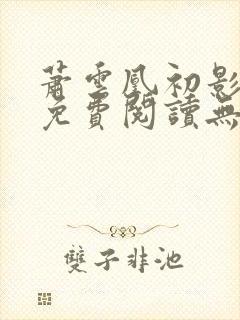 蕭雲凰初影
免費閱讀無
雙子非池